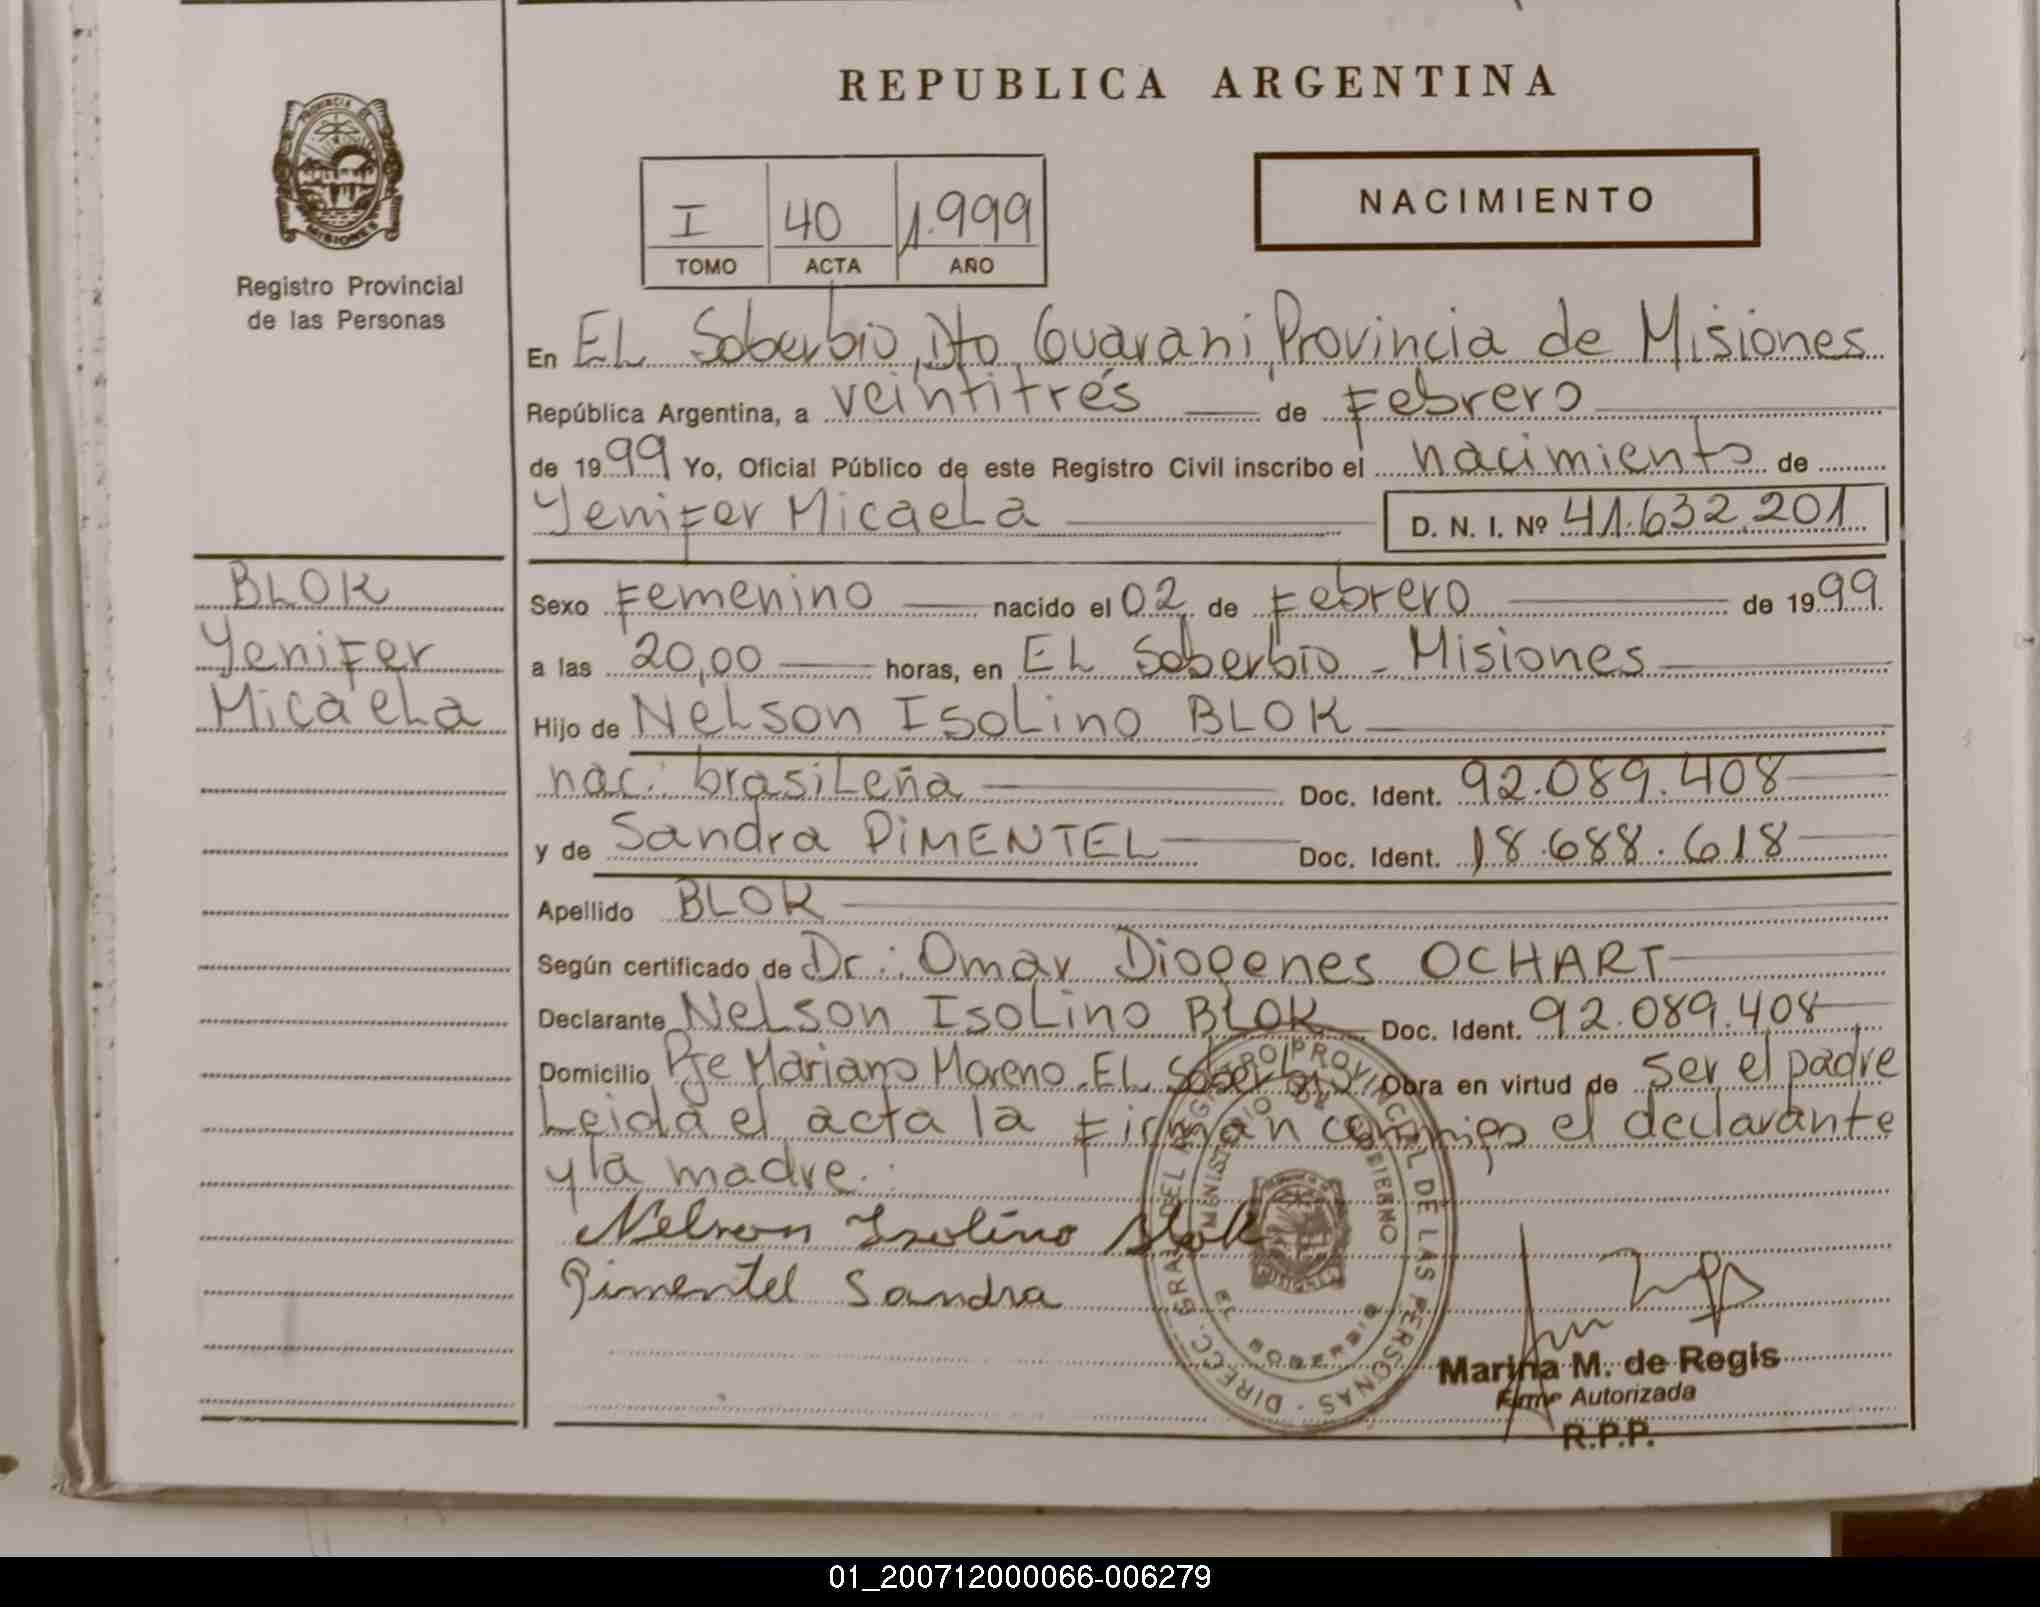 REPUBLICA ARGENTINA
PROVINCIA DE
MISIONES
Registro Provincial
de las Personas
NACIMIENTO
I 40 1.999
TOMO ACTA AÑO
En EL Soberbio, Dto Guarani, Provincia de Misiones
República Argentina, a veintitrés de Febrero
de 1999 Yo, Oficial Público de este Registro Civil inscribo el nacimiento de
Yenifer Micaela D. N. I. Nº 41.632.201
BLOK
Yenifer
Micaela
Sexo Femenino nacido el 02 de Febrero de 1999
a las 20,00 horas, en EL Soberbio - Misiones
Hijo de Nelson Isolino BLOK
nac. brasileña Doc. Ident. 92.089.408
y de Sandra PIMENTEL Doc. Ident. 18.688.618
Apellido BLOK
Según certificado de Dr: Omar Diogenes OCHART
Declarante Nelson Isolino BLOK Doc. Ident. 92.089.408
Domicilio Pje Mariano Moreno. EL Soberbio Obra en virtud de ser el padre
Leida el acta la Firman conmigo el declarante
y la madre.
Nelson Isolino Blok
Pimentel Sandra
DIRECC. GRAL DEL REGISTRO PROVINCIAL DE LAS PERSONAS
MINISTERIO DE GOBIERNO
EL SOBERBIO
Marina M. de Regis
Firma Autorizada
R.P.P.
01_200712000066-006279